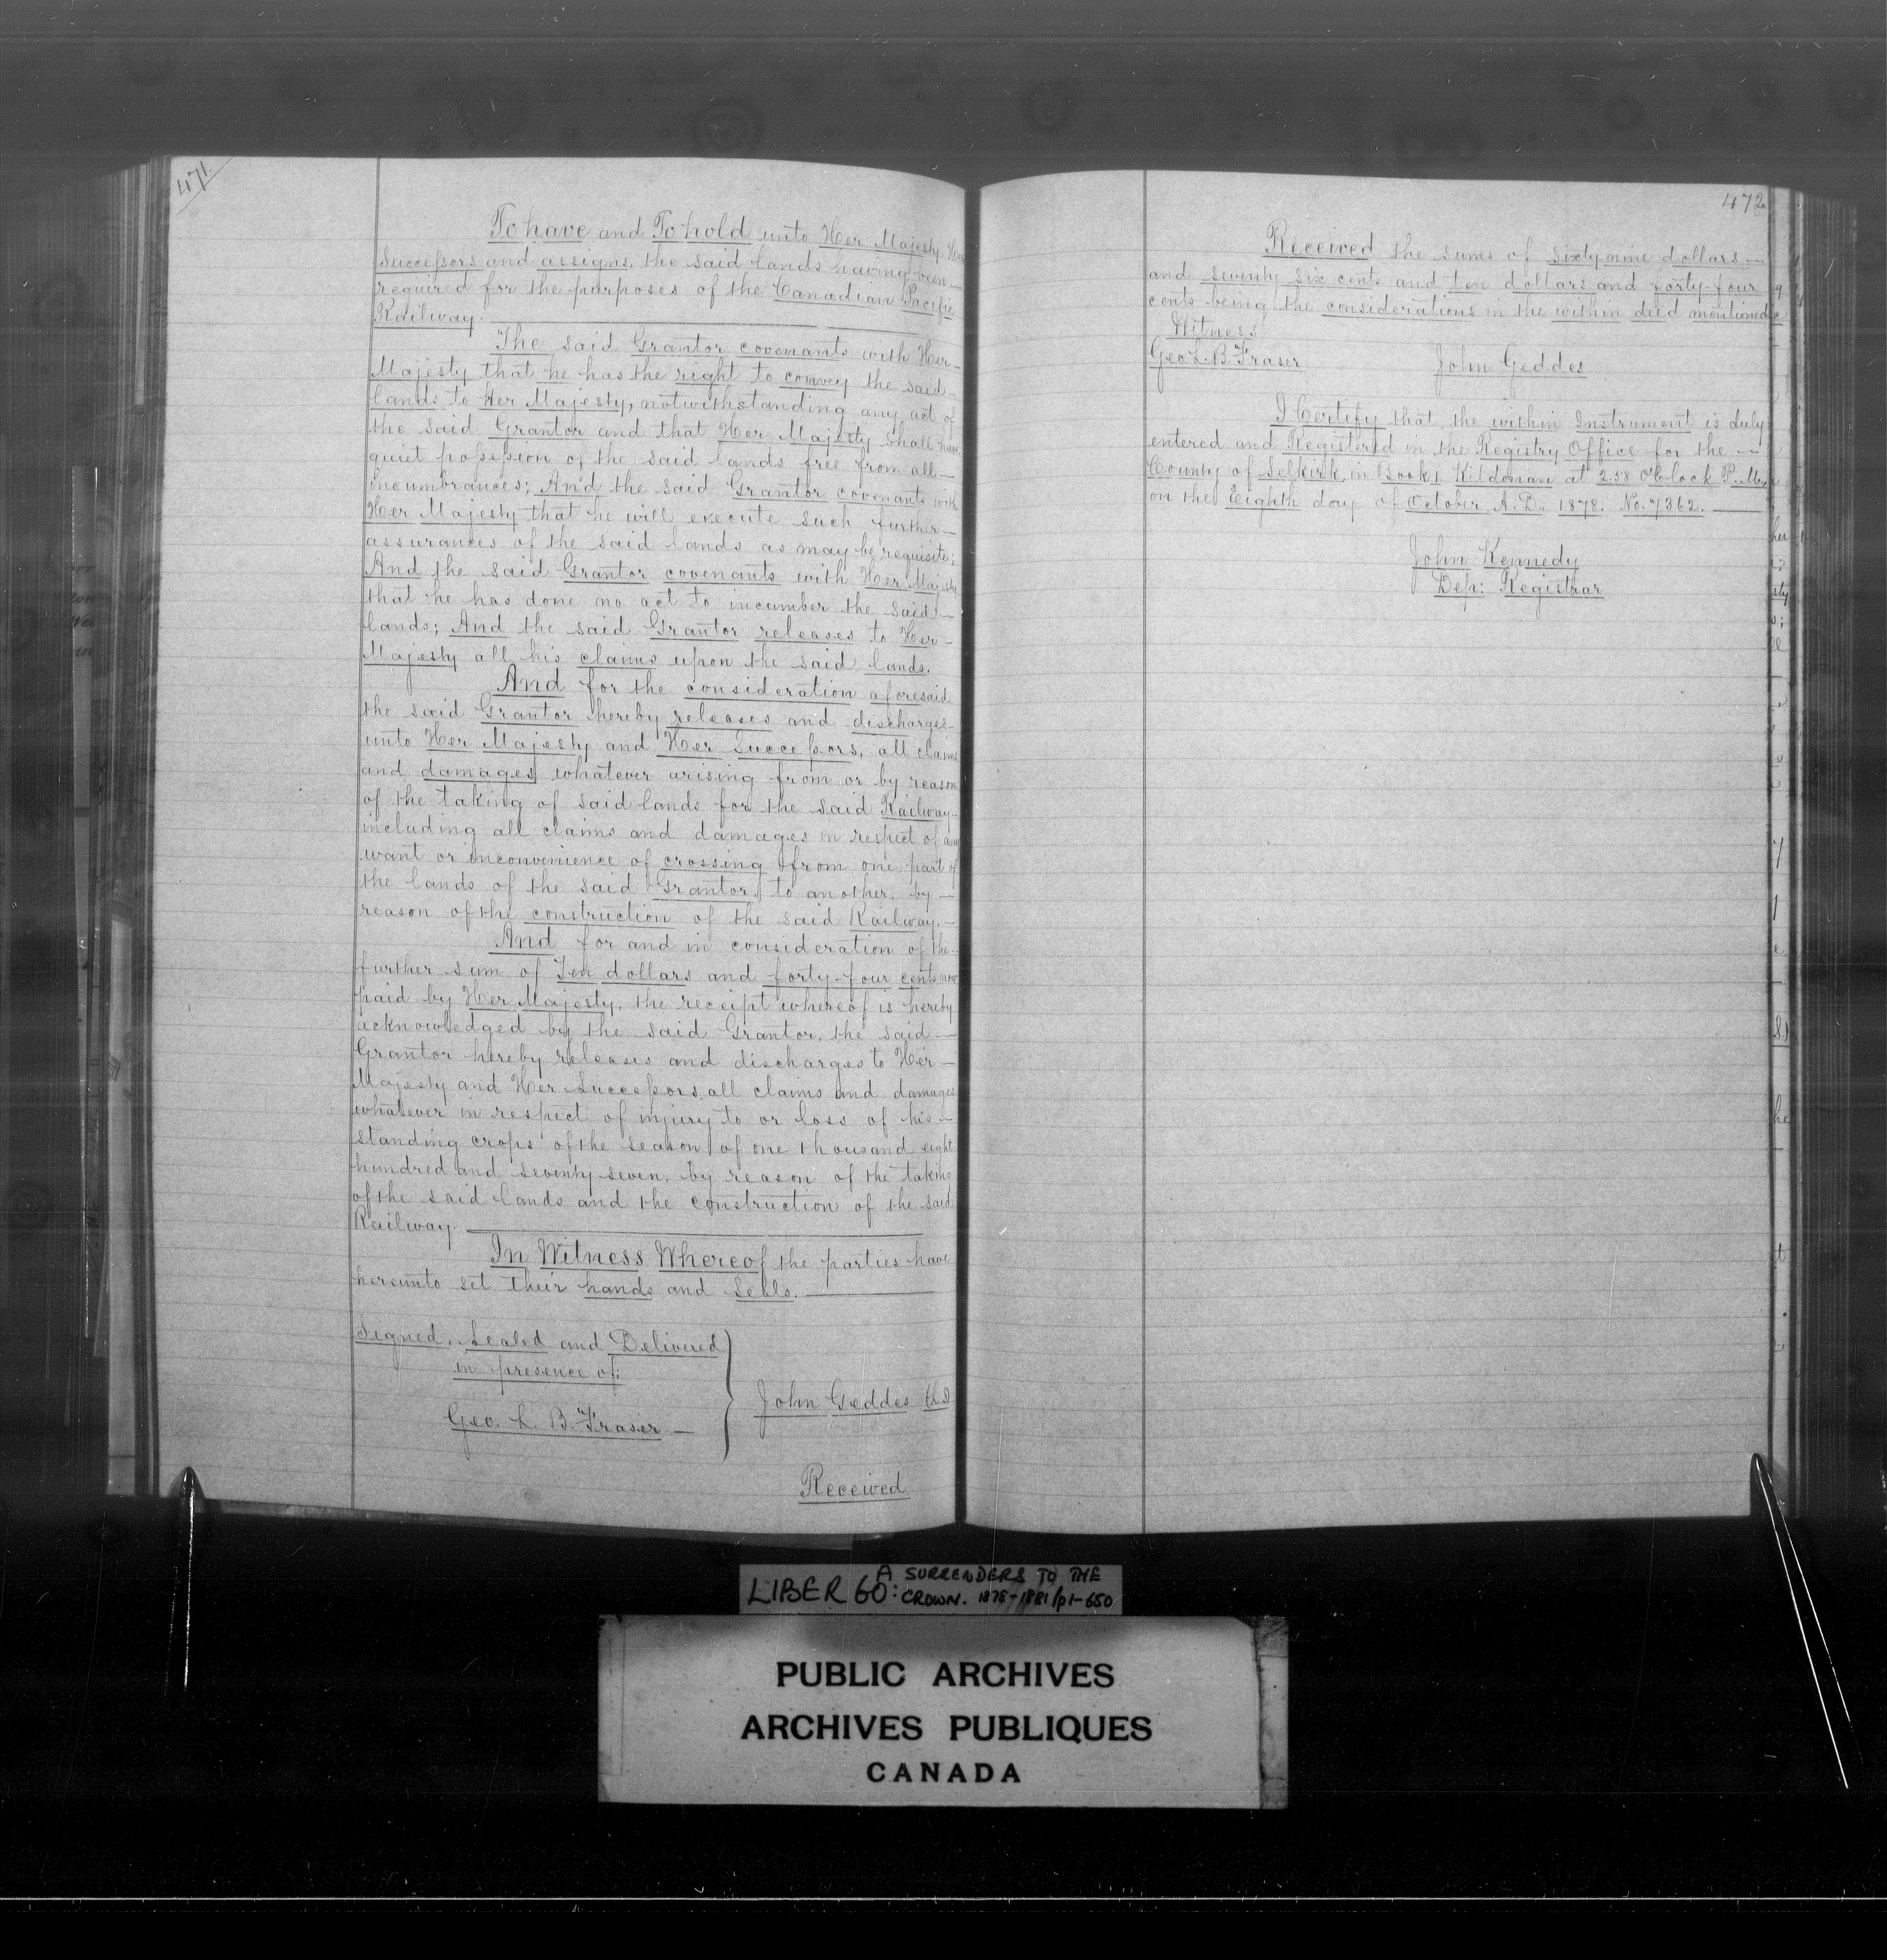 471.
To have and To hold unto Her Majesty, Her
Successors and assigns, the said lands having been
required for the purposes of the Canadian Pacific
Railway.
The said Grantor covenants with Her
Majesty that he has the right to convey the said
lands to Her Majesty, notwithstanding any act of
the said Grantor and that Her Majesty shall have
quiet possession of the said lands free from all
incumbrances; And the said Grantor covenants with
Her Majesty that he will execute such further
assurances of the said lands as may be requisite;
And the said Grantor covenants with Her Majesty
that he has done no act to incumber the said
lands; And the said Grantor releases to Her
Majesty all his claims upon the said lands.
And for the consideration aforesaid
the said Grantor hereby releases and discharges
unto Her Majesty and Her Successors, all claims
and damages whatever arising from or by reason
of the taking of said lands for the said Railway
including all claims and damages in respect of any
want or inconvenience of crossing from one part of
the lands of the said Grantor, to another, by
reason of the construction of the said Railway.
And for and in consideration of the
further sum of Ten dollars and forty-four cents now
paid by Her Majesty, the receipt whereof is hereby
acknowledged by the said Grantor, the said
Grantor hereby releases and discharges to Her
Majesty and Her Successors, all claims and damages
whatever in respect of injury to or loss of his
standing crops of the season of one thousand eight
hundred and seventy seven, by reason of the taking
of the said lands and the construction of the said
Railway.
In Witness Whereof the parties have
hereunto set their hands and Seals.
Signed, Sealed and Delivered
in presence of:
Geo. L. B. Fraser
John Geddes (L.S)
Received
472
Received the sums of Sixty nine dollars
and seventy six cents and ten dollars and forty-four
cents being the considerations in the within deed mentioned
Witness
Geo. L. B. Fraser John Geddes
I Certify that the within Instrument is duly
entered and Registered in the Registry Office for the
County of Selkirk, in Book 1. Kildonan at 2.58 O'Clock P.M.
on the Eighth day of October A.D. 1878. No. 7362.
John Kennedy
Dep: Registrar
LIBER 60: A SURRENDERS TO THE
CROWN. 1875-1881/p1-650
PUBLIC ARCHIVES
ARCHIVES PUBLIQUES
CANADA